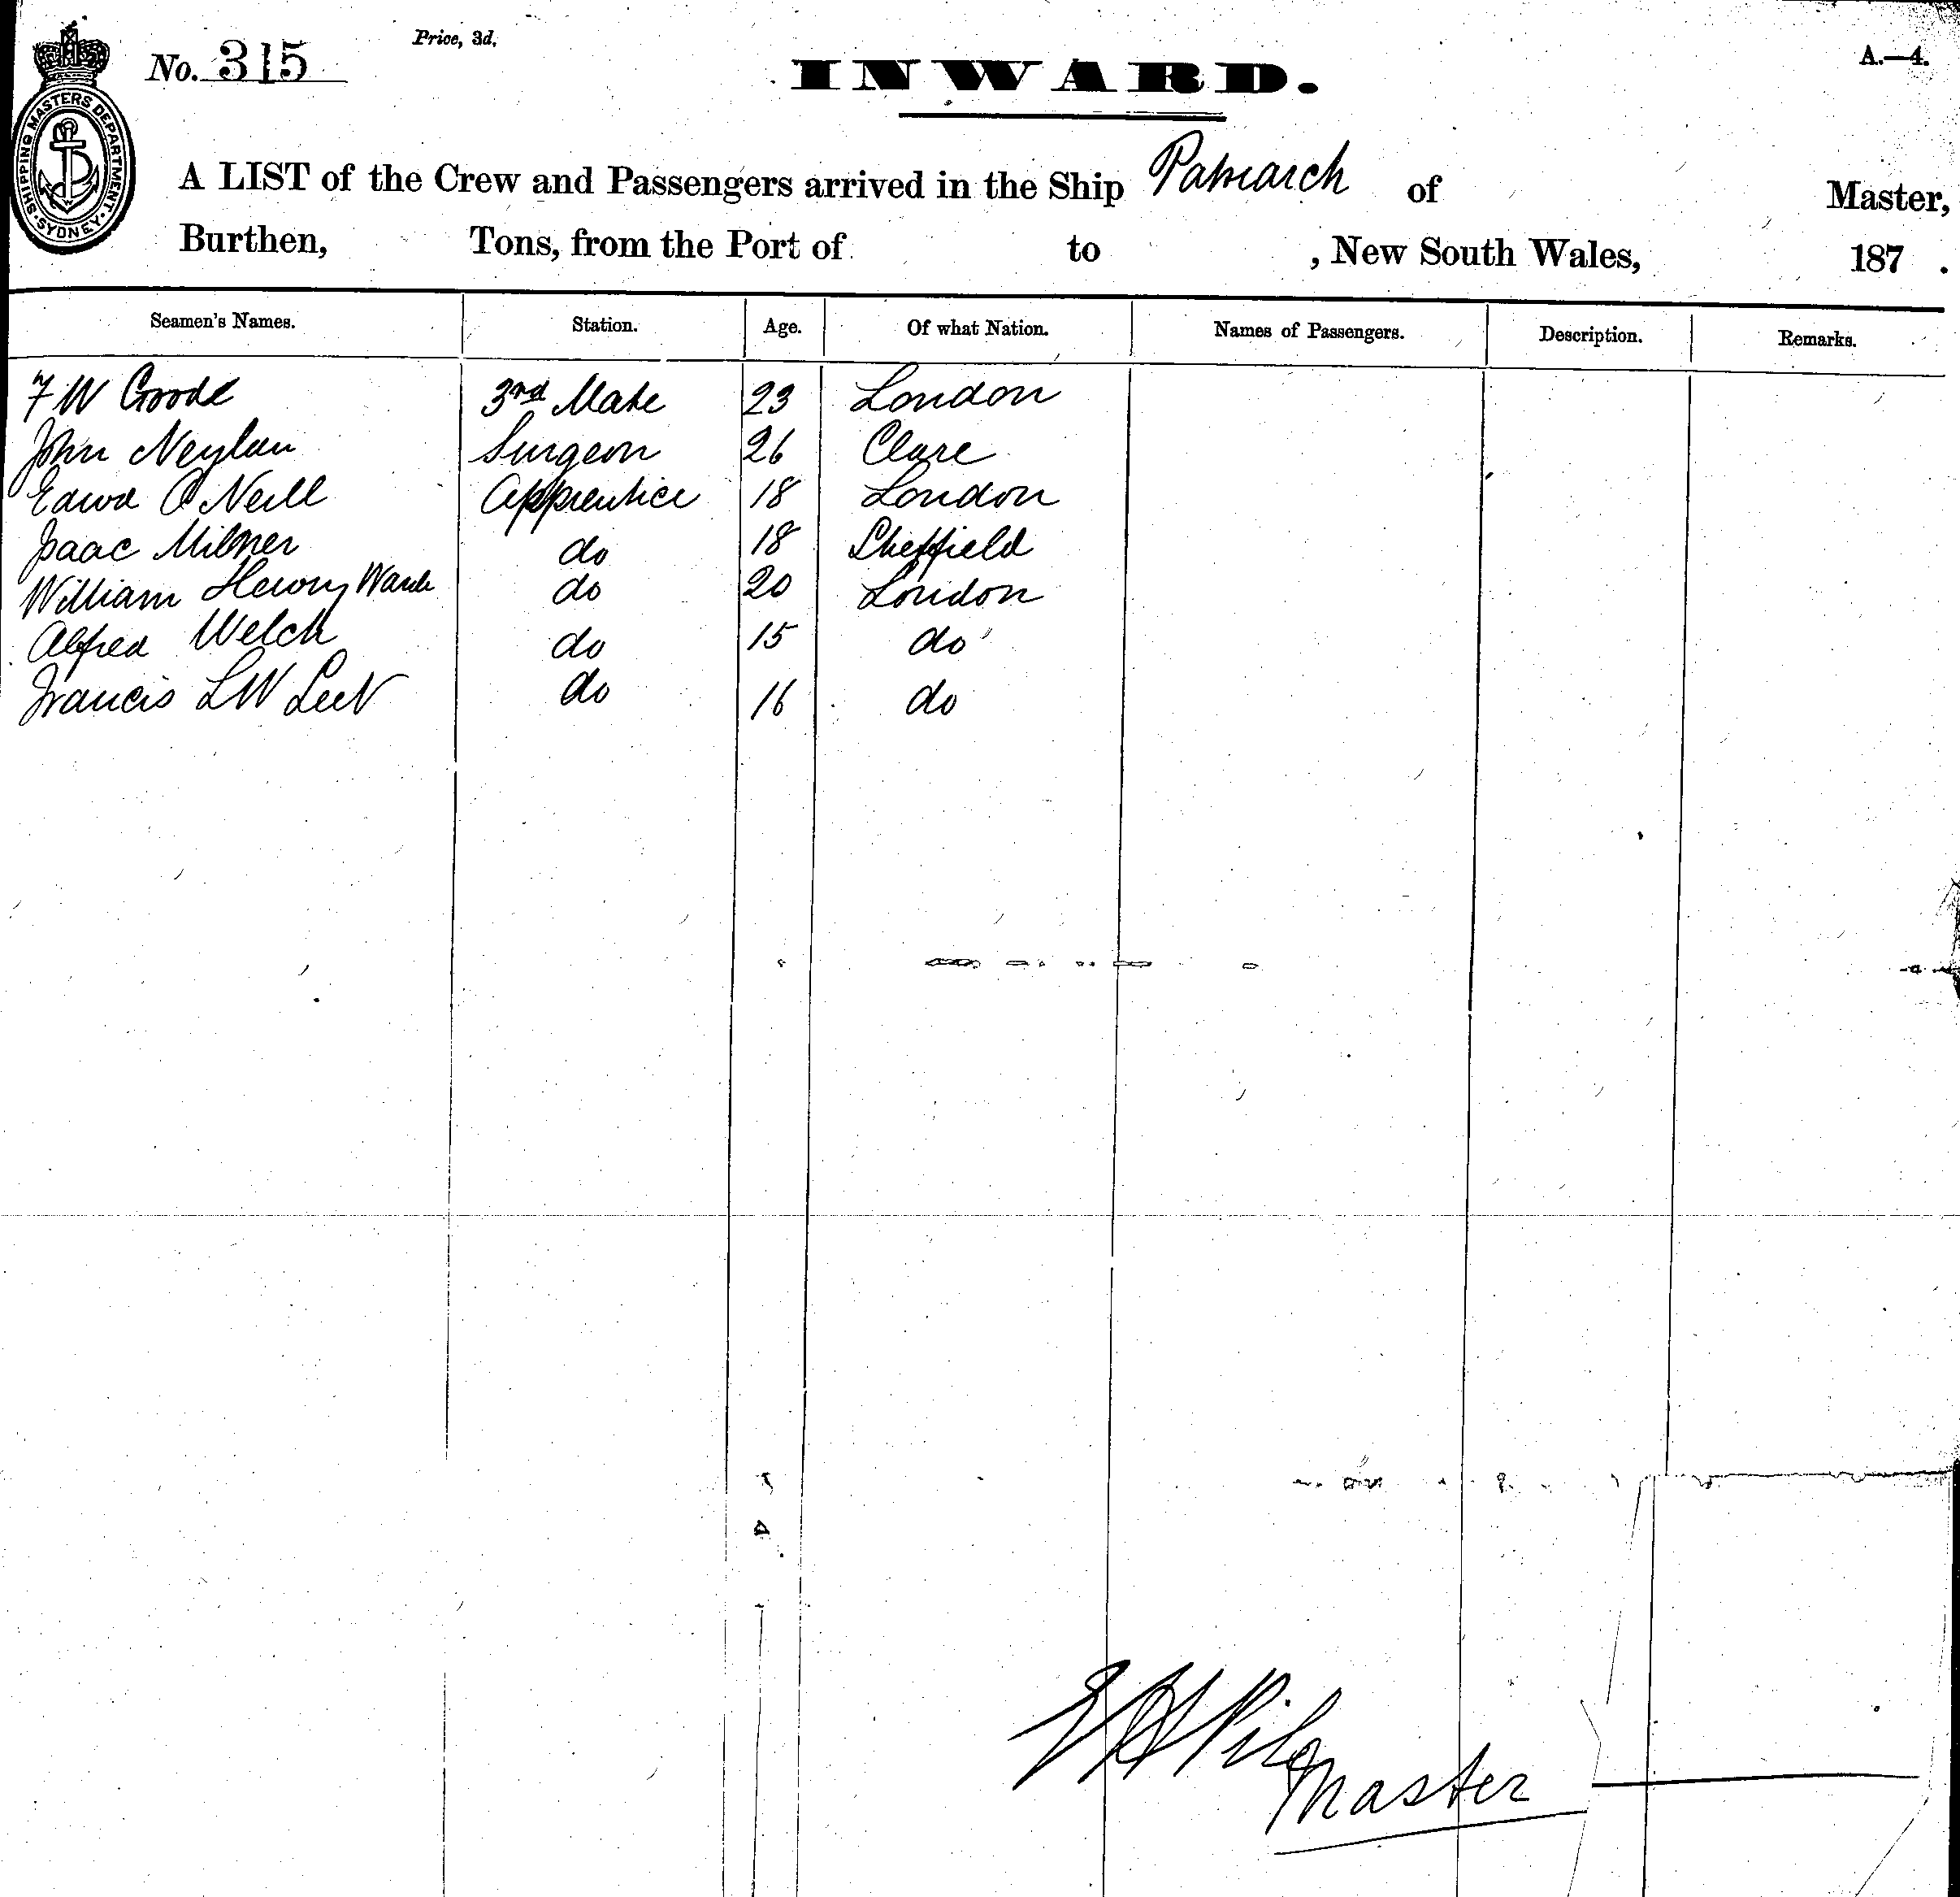 No. 315
Price, 3d.
INWARD.
A.—4.
SHIPPING MASTERS DEPARTMENT
SYDNEY
A LIST of the Crew and Passengers arrived in the Ship Patriarch of Master,
Burthen, Tons, from the Port of to , New South Wales, 187 .
Seamen's Names. Station. Age. Of what Nation. Names of Passengers. Description. Remarks.
F W Goode 3rd Mate 23 London
John Neylan Surgeon 26 Clare
Edwd O'Neill Apprentice 18 London
Isaac Milner do 18 Sheffield
William Henry do 20 London
Alfred Welch do 15 do
Francis L W do 16 do
Master